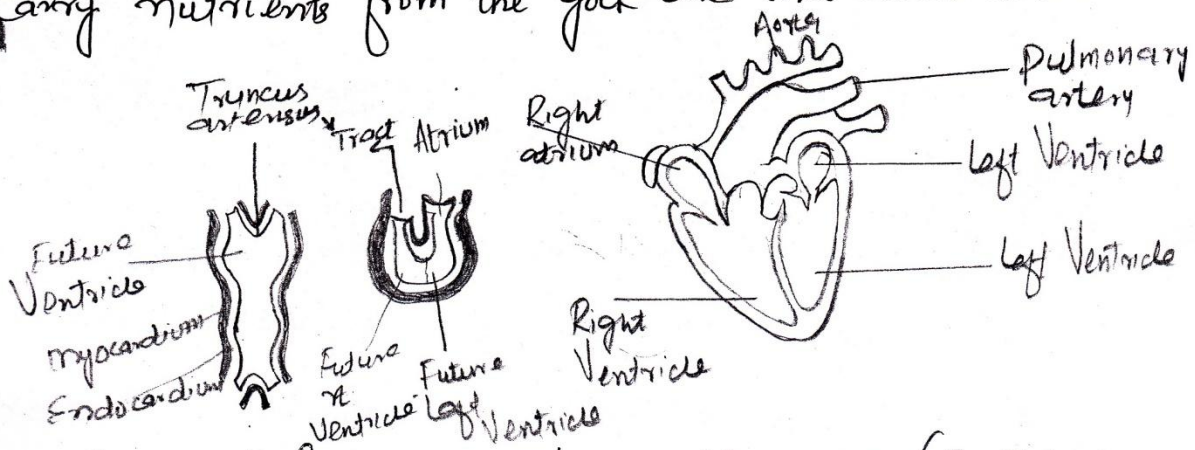 carry nutrients from the yolk
Truncus
arteriosus
Tract
Atrium
Future
Ventricle
Myocardium
Endocardium
Future
rt
Ventricle
Future
Left
Ventricle
Aorta
Pulmonary
artery
Right
atrium
Left Ventricle
Left Ventricle
Right
Ventricle